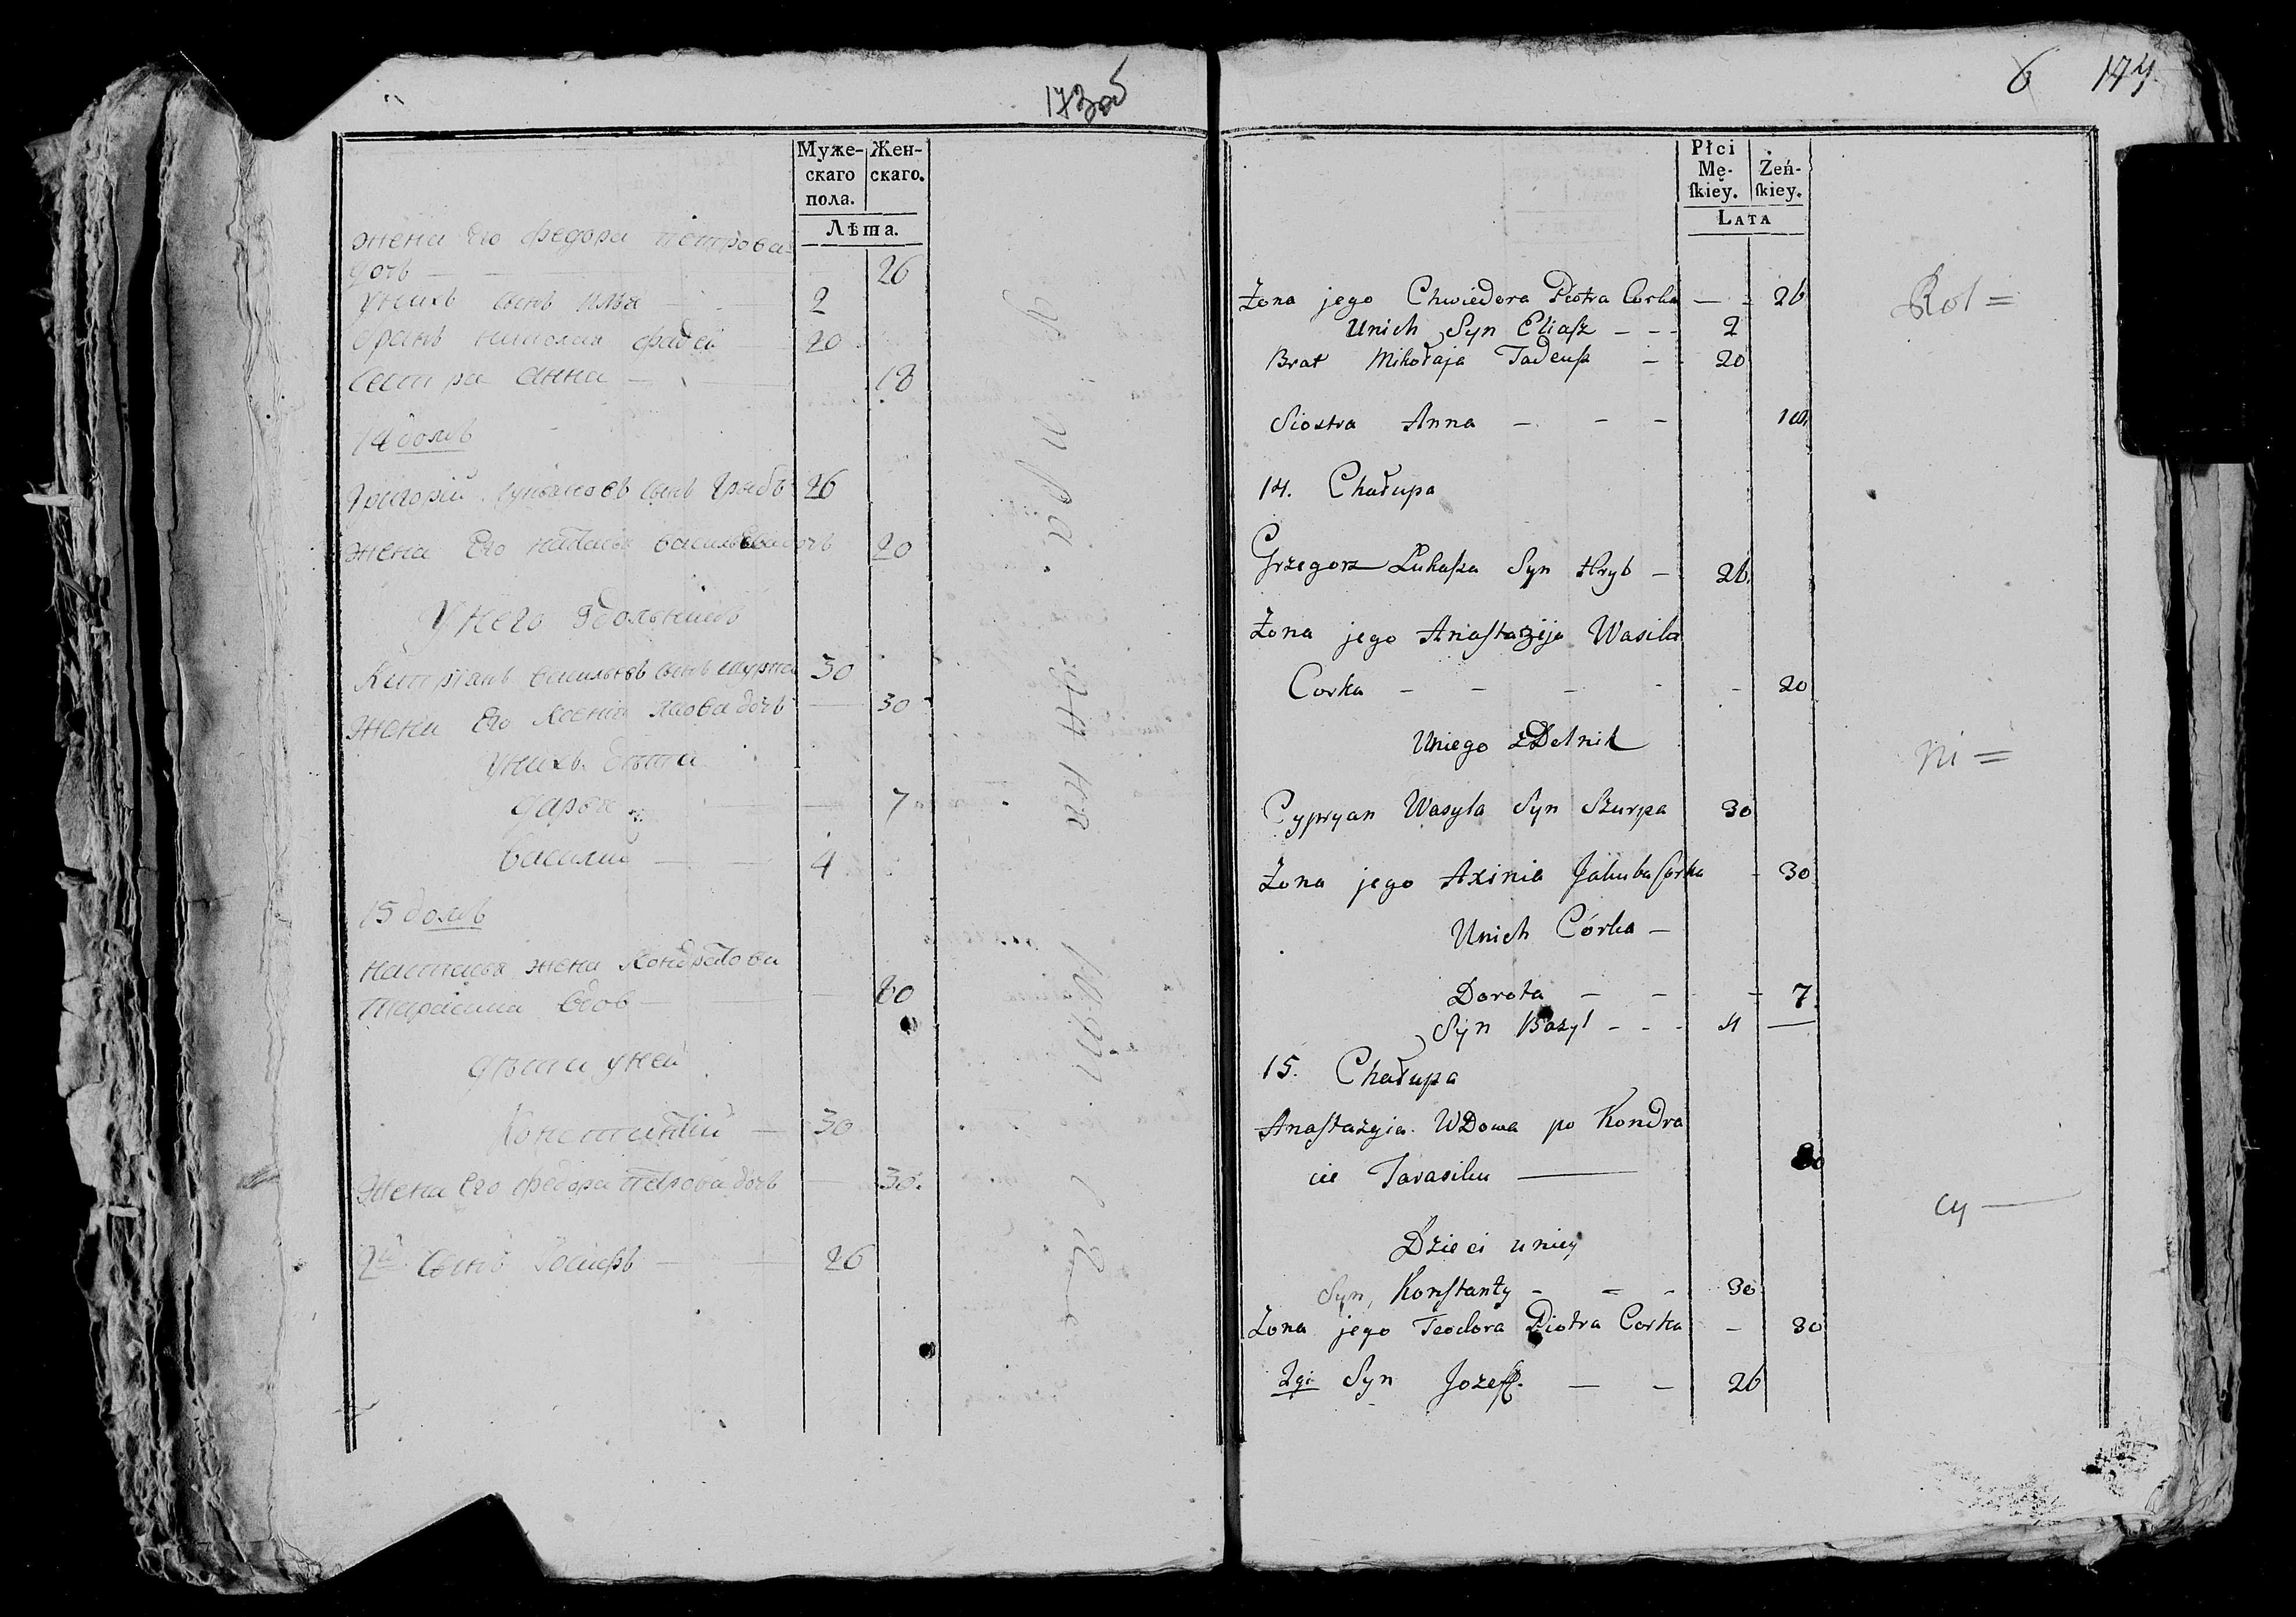 173об
Муже-
скаго
пола.
Жен-
скаго.
Лѣта.
жена Его федора петрова
дочь — 26
Унихъ сынъ илья — 2
братъ николая фадей 20
сестра анна — 18
14 домъ
Григорій сынъ грибъ 26
жена Его василева дочь 20
Унего
василевъ сынъ 30
жена Его Ксения дочь — 30
Унихъ дети
дарья — 7
василий — 4
15 домъ
настасья жена Кондратова
вдов — 80
дѣти уней
30
жена Его федора петрова дочь — 30.
2й сынъ — 26
6 174
Płci
Mę-
ſkiey.
Żeń-
ſkiey.
Lata
Żona jego Chwiedora Piotra Corka — 26
Unich Syn Eliaſz - - - 2
Brat Mikołaja Tadeuſz - 20
Siostra Anna - - - 18
14. Chałupa
Grzegorz Łukaſza Syn Hryb - 26
Żona jego Anaſtazija Wasila
Corka - - - - - 20
Uniego zDelnik
Cypryan Wasyla Syn Szurpa 30
Żona jego Axinia Jakuba Corka - 30
Unich Córka -
Dorota - - - - 7
Syn Bazyl - - - 4 —
15. Chałupa
Anaſtazyia WDowa po Kondra
cie Tarasiku — 80
Dzieci uniey
Syn, Konſtanty - = - 30
Żona jego Teodora Piotra Corka - 30
2gi Syn Jozeff. — - 26
Rol =
ni =
cy —